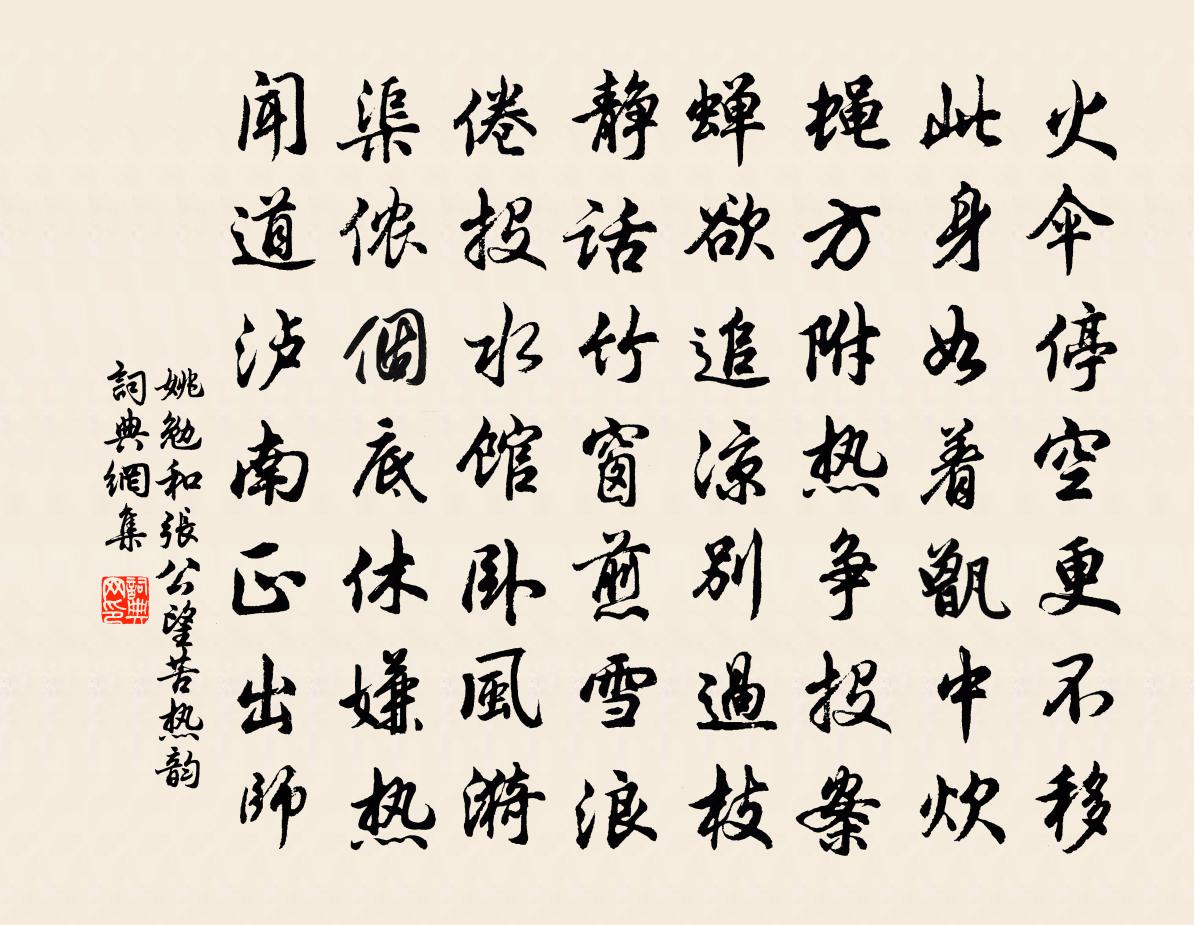 火伞停空更不移
此身如着甑中炊
蝇方附热争投案
蝉欲追凉别過枝
静话竹窗煎雪浪
倦投水馆卧風漪
渠侬個底休嫌热
闻道泸南正出师
姚勉和張公望苦热韵
詞典網集
詞典网印